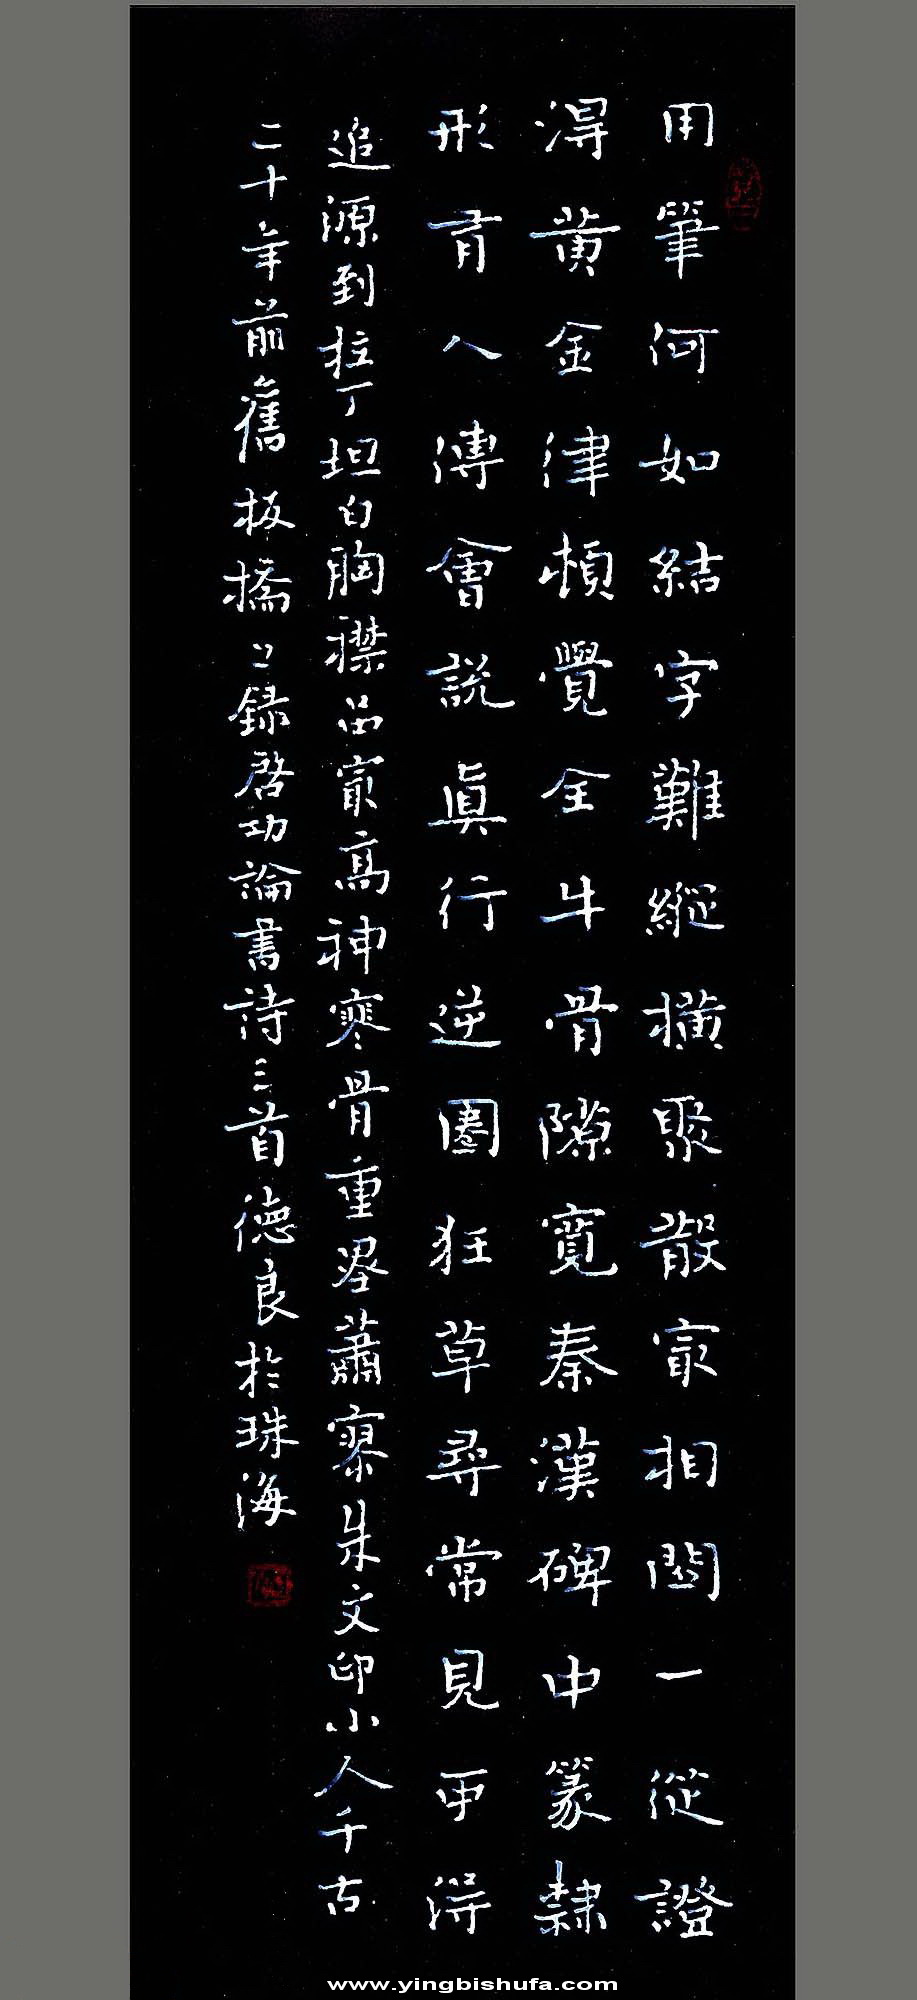 用筆何如結字難縱橫聚散最相關一從證
得黃金律頓覺全牛骨隙寬秦漢碑中篆隸
形有人傳會說真行逆圈狂草尋常見可得
追源到拉丁坦白胸襟品最高神寒骨重墨蕭寥朱文印小人千古
二十年前舊板橋〻錄啓功論書詩三首德良於珠海
www.yingbishufa.com